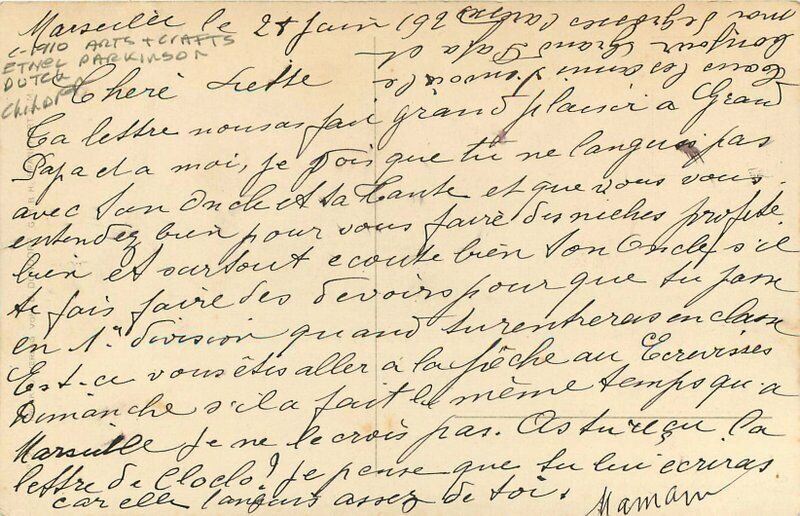 Marseille le 28 Juin 192
C-1910 ARTS + CRAFTS
ETHEL PARKINSON
DUTCH
Children
Cheré Ziette
Ta lettre nous as fait grand plaisir a Grand
Papa et a moi, je vois que tu ne languis pas
avec ton Oncle et ta Tante et que vous vous
entendez bien pour vous faire des niches profite
bien et surtout ecoute bien ton Oncle s'il
te fais faire des devoirs pour que tu passe
en 1re division quand tu rentreras en classe
Est-ce vous êtes aller a la pêche au Ecrevisses
Dimanche s'il a fait le même temps qu'a
Marseille je ne le crois pas. As tu reçu la
lettre de Cloclo? Je pense que tu lui écriras
car elle languis assez de toi.
Maman
tous les amis t'envoie le
bonjour Grand Papa et
moi